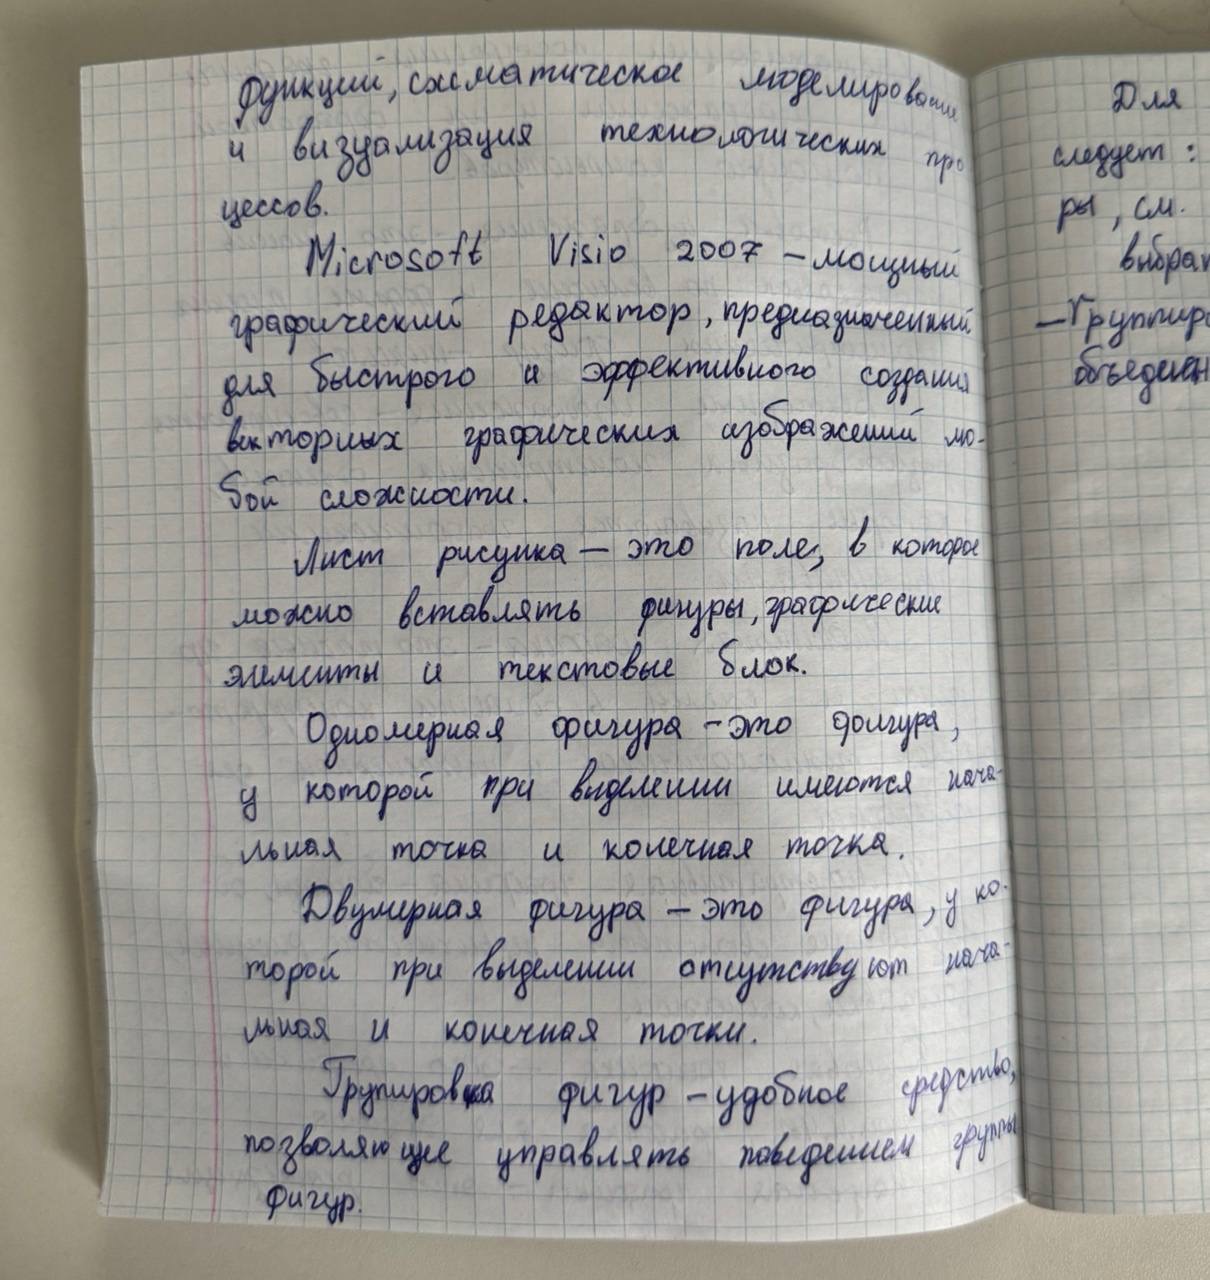 функций, схематическое моделирование
и визуализация технологических про
цессов.
Microsoft Visio 2007 – мощный
графический редактор, предназначенный
для быстрого и эффективного создания
векторных графических изображений лю-
бой сложности.
Лист рисунка – это поле, в которое
можно вставлять фигуры, графические
элементы и текстовые блок.
Одномерная фигура – это фигура,
у которой при выделении имеются нача-
льная точка и конечная точка.
Двумерная фигура – это фигура, у ко-
торой при выделении отсутствуют нача-
льная и конечная точки.
Групировка фигур – удобное средство,
позволяющее управлять поведением группы
фигур.
Для
следует:
ры, см.
выбрат
– Группиро
объединен